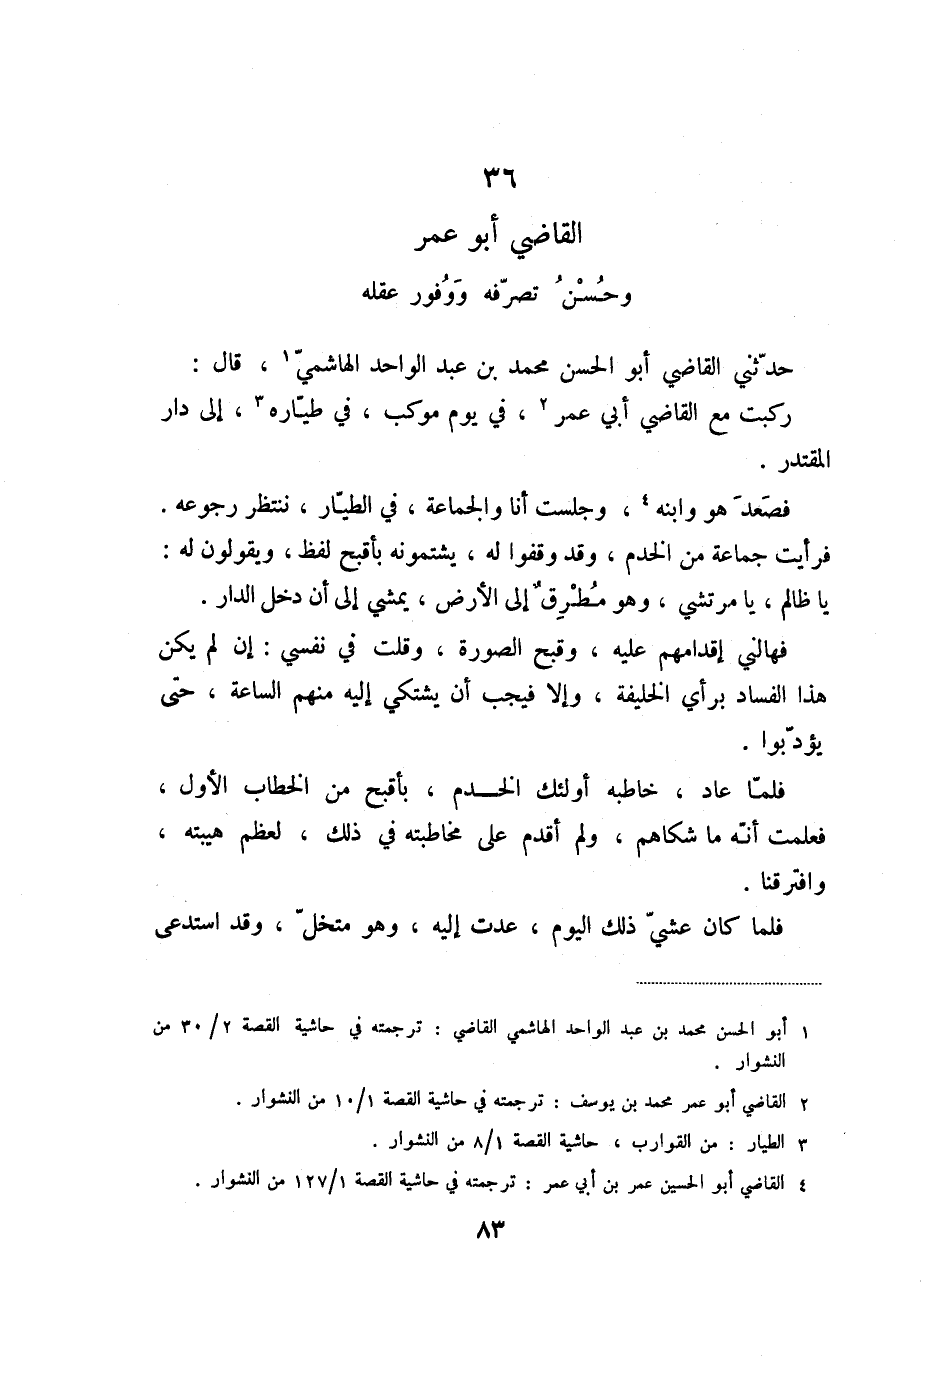 ٣٦
القاضي أبو عمر
وحُسْنُ تصرّفه وَوُفور عقله
حدّثني القاضي أبو الحسن محمد بن عبد الواحد الهاشميّ١ ، قال :
ركبت مع القاضي أبي عمر٢ ، في يوم موكب ، في طيّاره٣ ، إلى دار
المقتدر .
فصَعدَ هو وابنه٤ ، وجلست أنا والجماعة ، في الطيّار ، ننتظر رجوعه .
فرأيت جماعة من الخدم ، وقد وقفوا له ، يشتمونه بأقبح لفظ ، ويقولون له :
يا ظالم ، يا مرتشي ، وهو مُطْرِقٌ إلى الأرض ، يمشي إلى أن دخل الدار .
فهالني إقدامهم عليه ، وقبح الصورة ، وقلت في نفسي : إن لم يكن
هذا الفساد برأي الخليفة ، وإلا فيجب أن يشتكي إليه منهم الساعة ، حتّى
يؤدّبوا .
فلمّا عاد ، خاطبه أولئك الخـــدم ، بأقبح من الخطاب الأول ،
فعلمت أنّه ما شكاهم ، ولم أقدم على مخاطبته في ذلك ، لعظم هيبته ،
وافترقنا .
فلما كان عشيّ ذلك اليوم ، عدت إليه ، وهو متخلّ ، وقد استدعى
١ أبو الحسن محمد بن عبد الواحد الهاشمي القاضي : ترجمته في حاشية القصة ٢/ ٣٠ من
النشوار .
٢ القاضي أبو عمر محمد بن يوسف : ترجمته في حاشية القصة ١٠/١ من النشوار .
٣ الطيار : من القوارب ، حاشية القصة ٨/١ من النشوار .
٤ القاضي أبو الحسين عمر بن أبي عمر : ترجمته في حاشية القصة ١٢٧/١ من النشوار .
٨٣